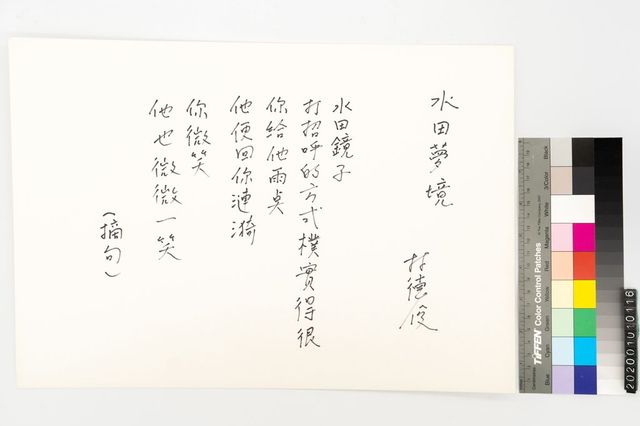 水田夢境
林德俊
水田鏡子
打招呼的方式樸實得很
你給他雨點
他便回你漣漪
你微笑
他也微微一笑
(摘句)
Black
3/Color
White
Magenta
Red
Yellow
Green
Cyan
Blue
TIFFEN Color Control Patches
202001010116